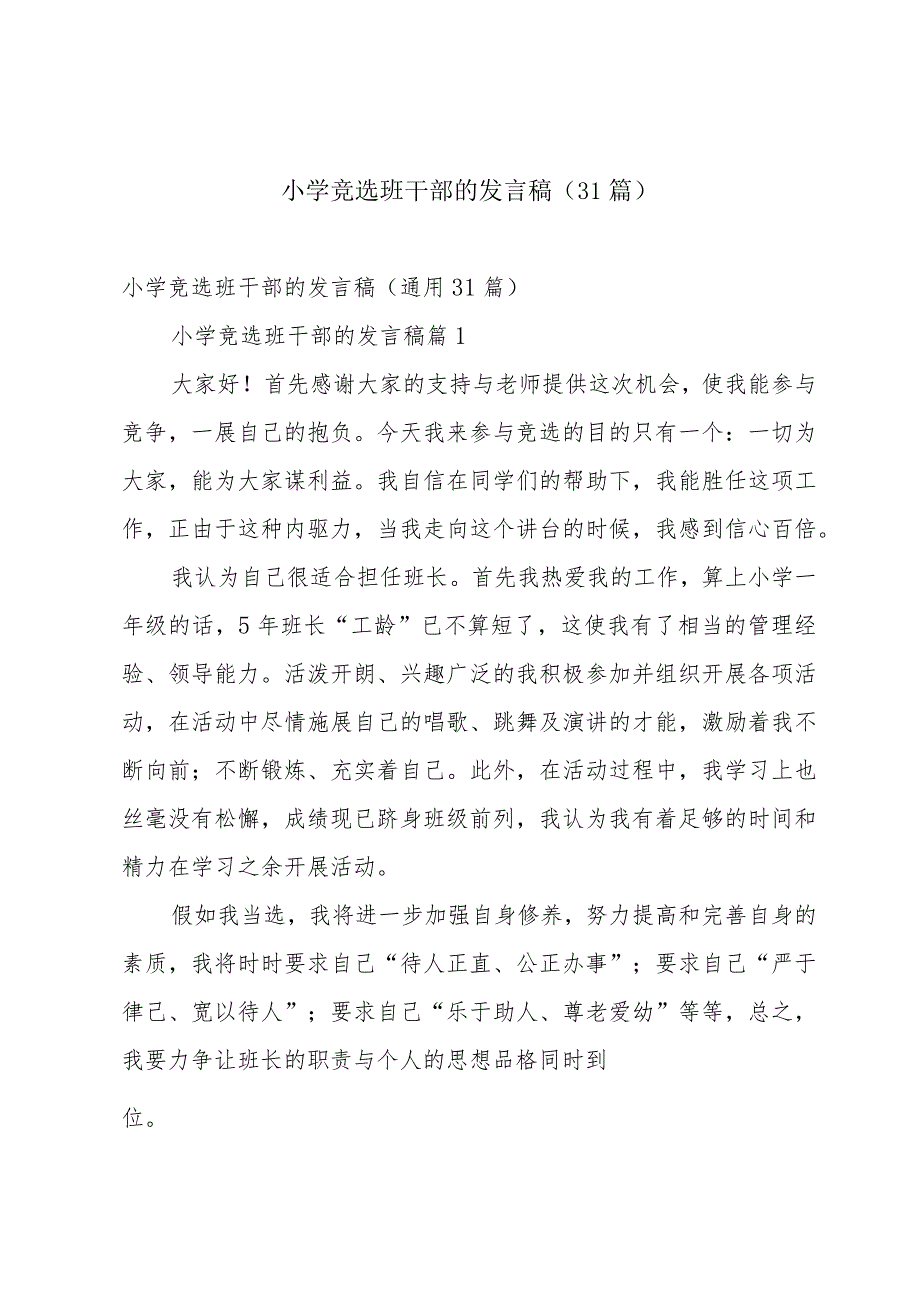 小学竞选班干部的发言稿（31 篇）
小学竞选班干部的发言稿（通用 31 篇）
小学竞选班干部的发言稿篇 1
大家好！首先感谢大家的支持与老师提供这次机会，使我能参与
竞争，一展自己的抱负。今天我来参与竞选的目的只有一个：一切为
大家，能为大家谋利益。我自信在同学们的帮助下，我能胜任这项工
作，正由于这种内驱力，当我走向这个讲台的时候，我感到信心百倍。
我认为自己很适合担任班长。首先我热爱我的工作，算上小学一
年级的话，5 年班长“工龄”已不算短了，这使我有了相当的管理经
验、领导能力。活泼开朗、兴趣广泛的我积极参加并组织开展各项活
动，在活动中尽情施展自己的唱歌、跳舞及演讲的才能，激励着我不
断向前；不断锻炼、充实着自己。此外，在活动过程中，我学习上也
丝毫没有松懈，成绩现已跻身班级前列，我认为我有着足够的时间和
精力在学习之余开展活动。
假如我当选，我将进一步加强自身修养，努力提高和完善自身的
素质，我将时时要求自己“待人正直、公正办事”；要求自己“严于
律己、宽以待人”；要求自己“乐于助人、尊老爱幼”等等，总之，
我要力争让班长的职责与个人的思想品格同时到
位。